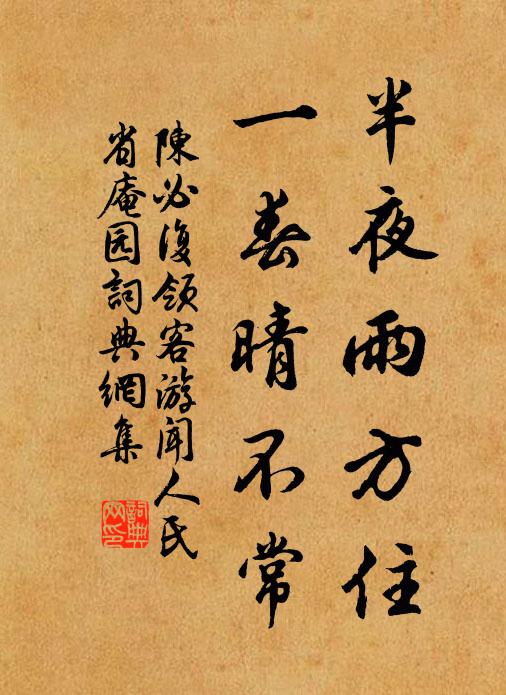 半夜雨方住
一春晴不常
陳必復領客游聞人民
省庵园詞典網集
詞典网印